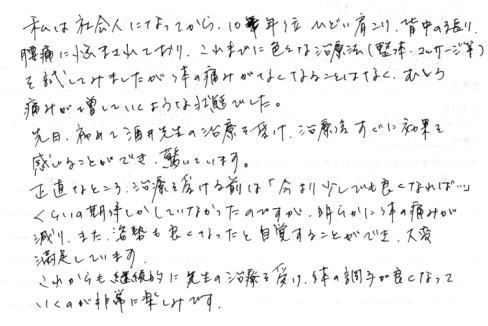 私は社会人になってから、10年位ひどい肩こり、背中の張り、
腰痛に悩まされており、これまでに色々な治療法(整体・マッサージ等)
を試してみましたが体の痛みがなくなることはなく、むしろ
痛みが増していくような状態でした。
先日、初めて酒井先生の治療を受け、治療後すぐに効果を
感じることができ、驚いています。
正直なところ、治療を受ける前は「今より少しでも良くなれば…」
くらいの期待しかしていなかったのですが、明らかに体の痛みが
減り、また、姿勢も良くなったと自覚することができ、大変
満足しています。
これからも継続的に先生の治療を受け、体の調子が良くなって
いくのが非常に楽しみです。